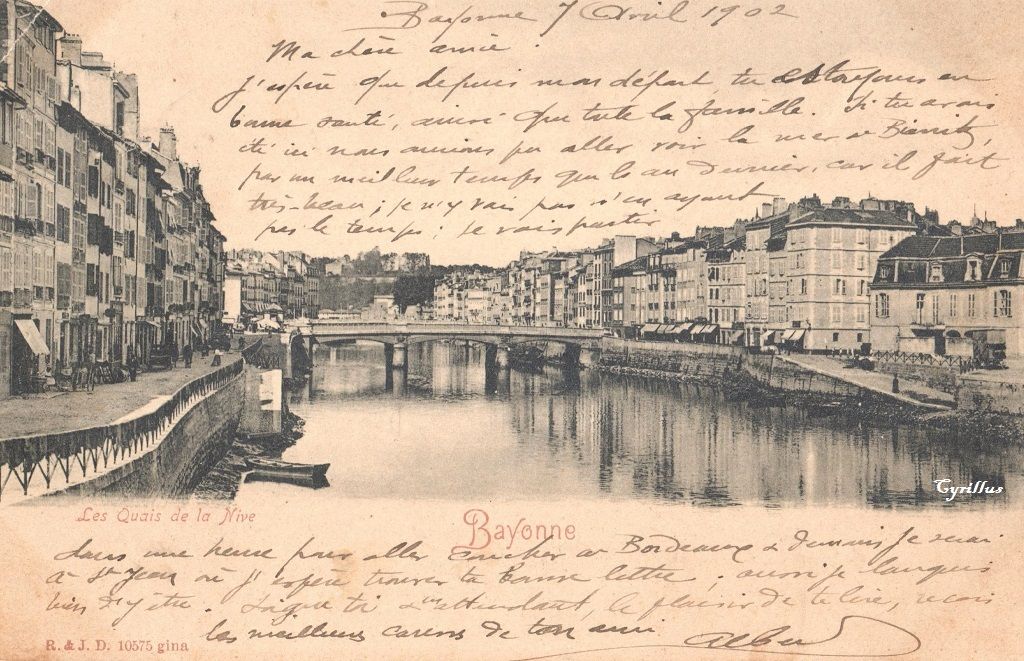 Bayonne 7 Avril 1902
Ma chère amie.
J'espère que depuis mon départ, tu es toujours en
bonne santé, ainsi que toute la famille. Si tu avais
été ici nous aurions pu aller voir la mer à Biarritz,
par un meilleur temps que l'an dernier, car il fait
très-beau; je n'y vais pas n'en ayant
pas le temps; je vais partir
Cyrillus
Les Quais de la Nive
Bayonne
dans une heure pour aller coucher à Bordeaux & demain je serai
à St Jean où j'espère trouver ta bonne lettre; aussi je languis
bien d'y être. en attendant, le plaisir de te lire, reçois
les meilleurs de ton ami
Albert
R. & J. D. 10575 gina